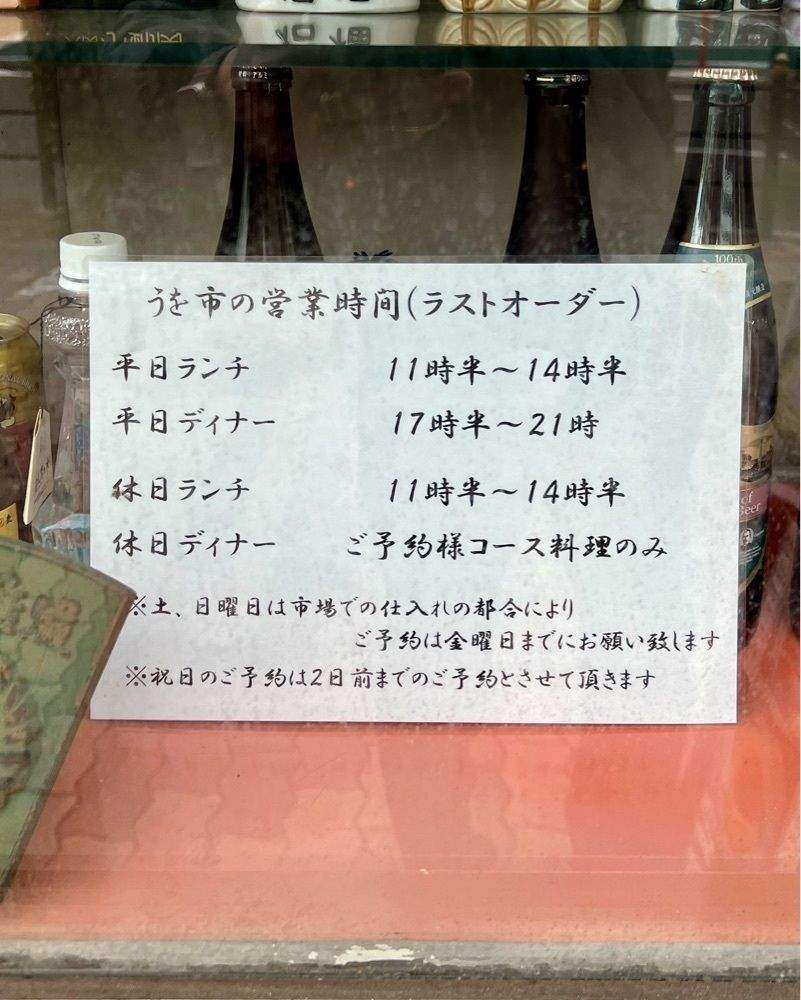 うを市の営業時間(ラストオーダー)
平日ランチ 11時半～14時半
平日ディナー 17時半～21時
休日ランチ 11時半～14時半
休日ディナー ご予約様コース料理のみ
※土、日曜日は市場での仕入れの都合により
ご予約は金曜日までにお願い致します
※祝日のご予約は2日前までのご予約とさせて頂きます
100th
of
Beer